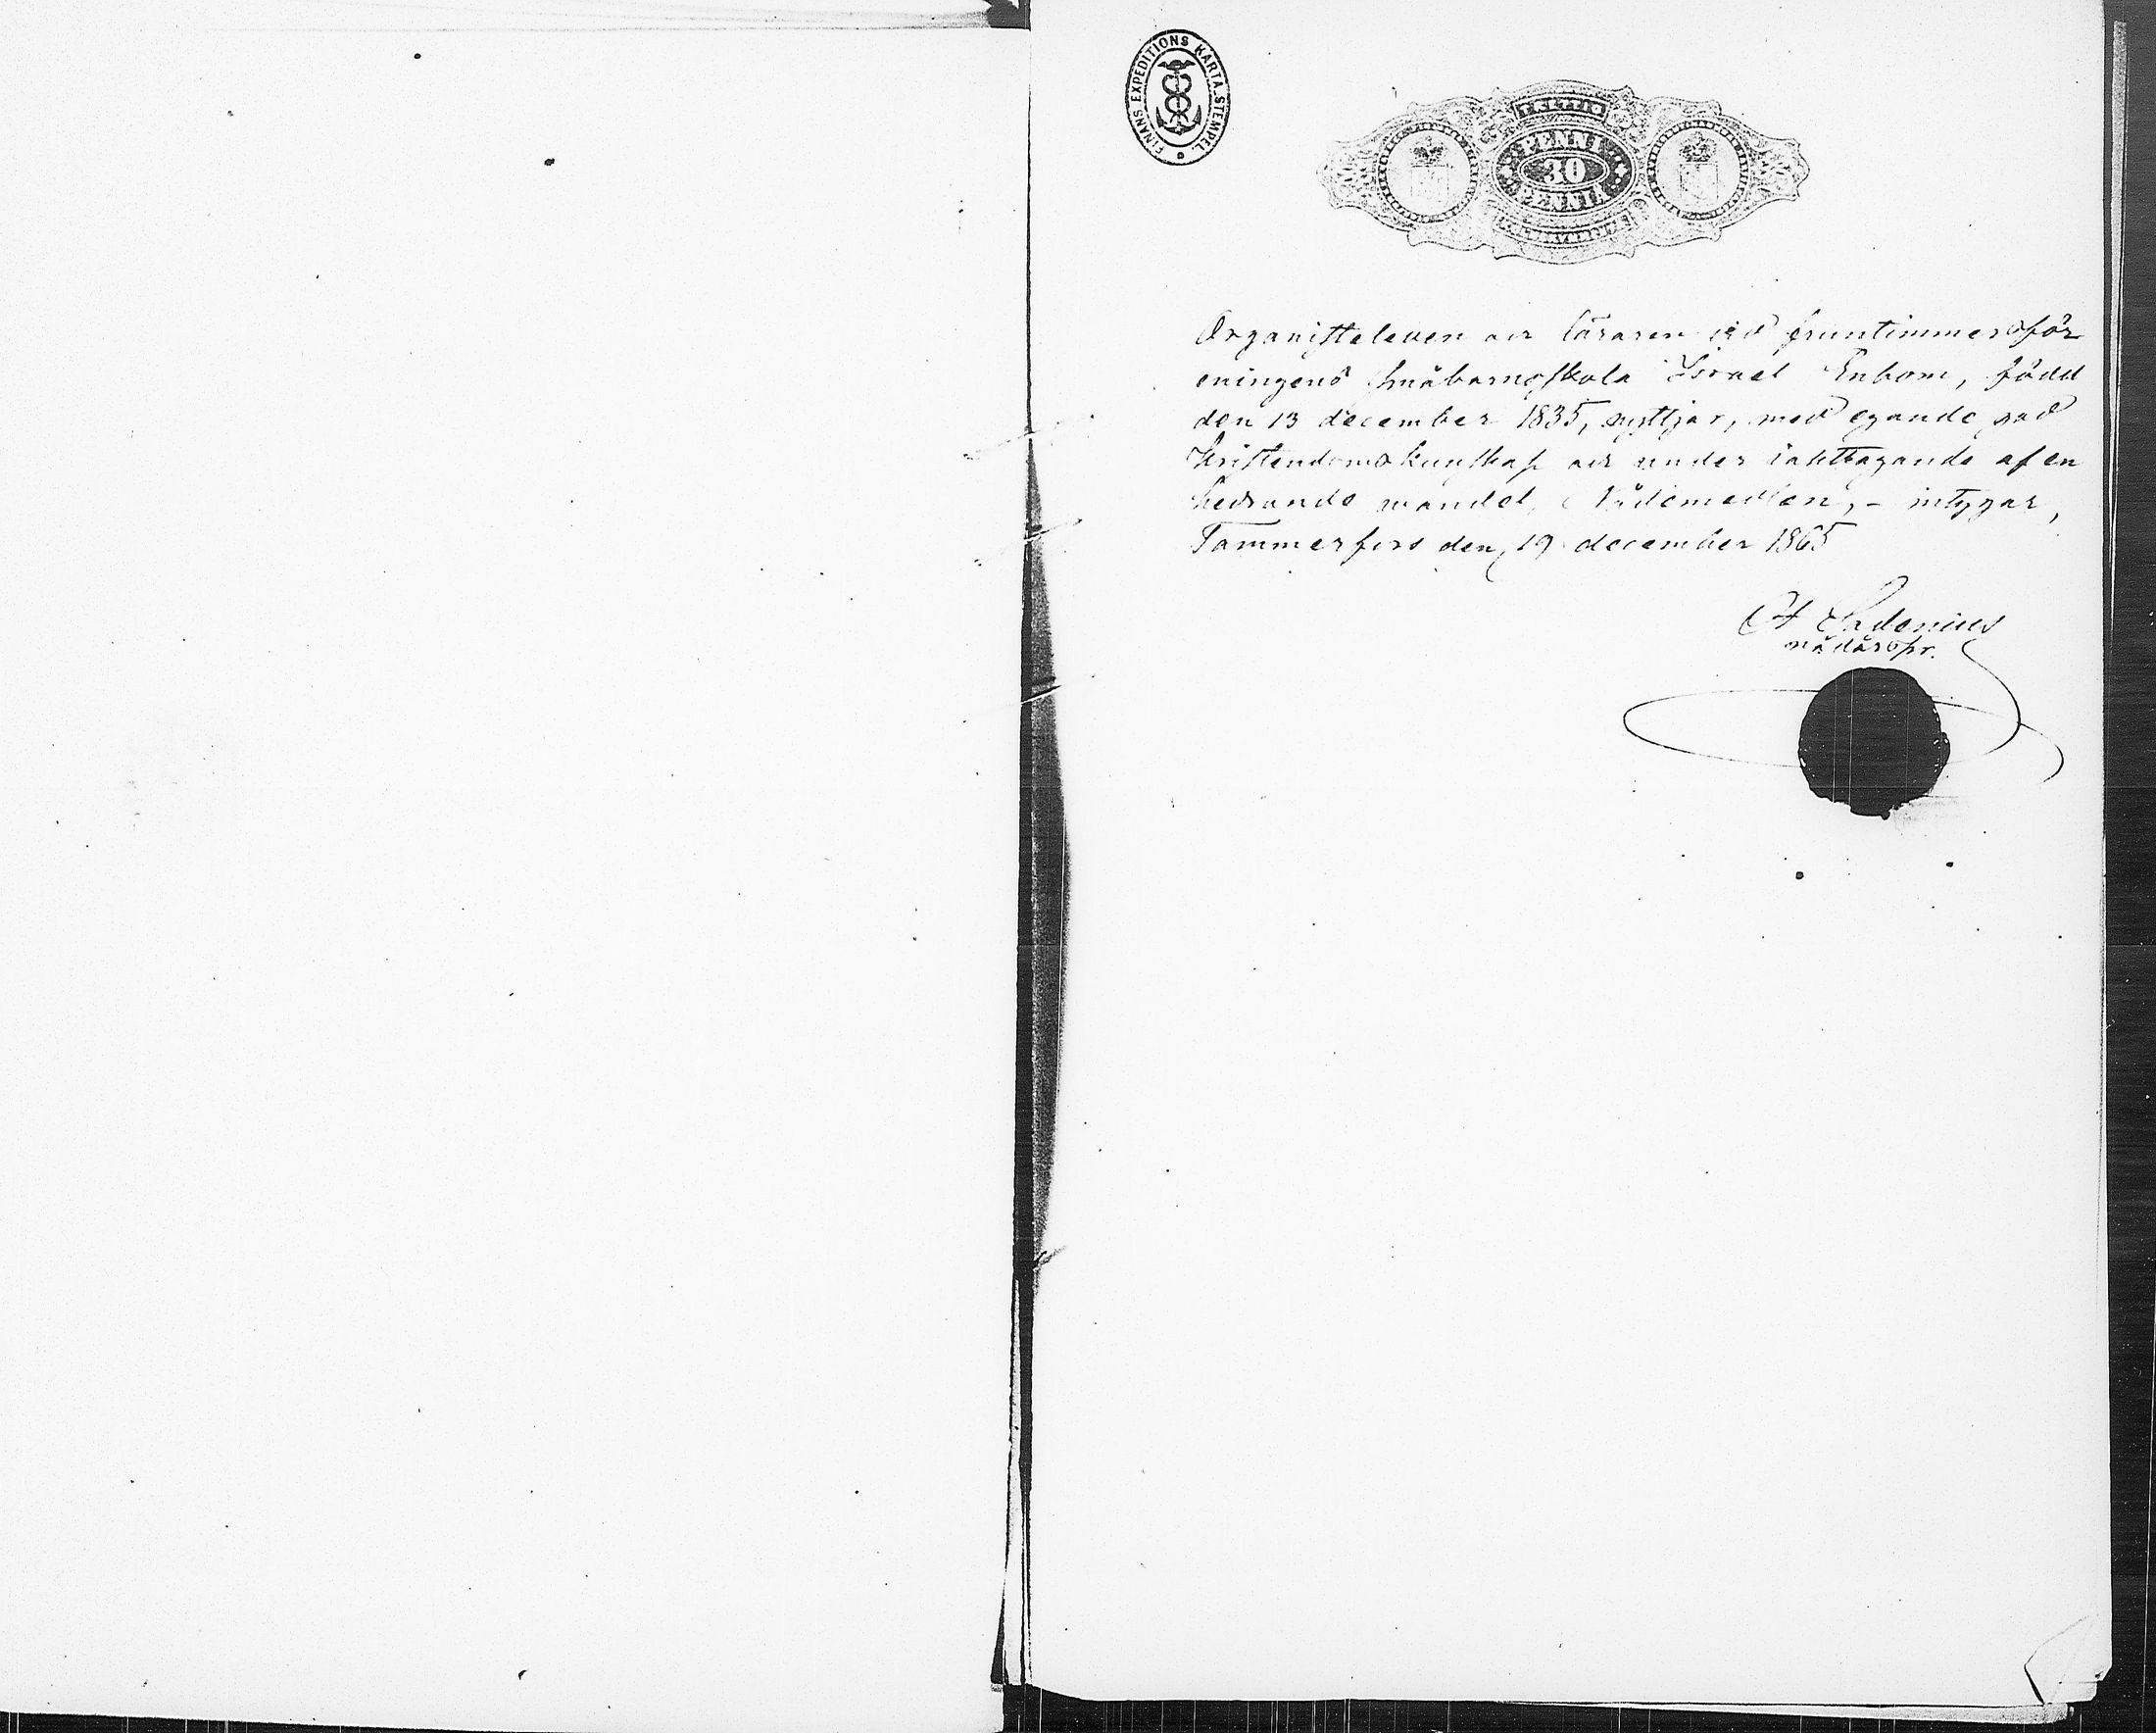 FINANS EXPEDITIONS KARTA.STEMPEL.
TRETTIO
PENNI
30
PENNIÄ
Organisteleven och läraren vid fruntimmersför
eningens småbarnsskola Israel Enbom, född
den 13 december 1835, nyttjar, med egande god
Kristendomskunskap och under iakttagande af en
hedrande wandel, Nådemedlen, - intygar,
Tammerfors den 19 december 1865
nådårspr.